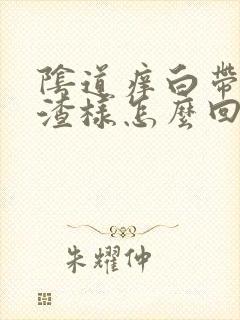 陰道痒白帶
渣樣怎麼回
朱耀仲